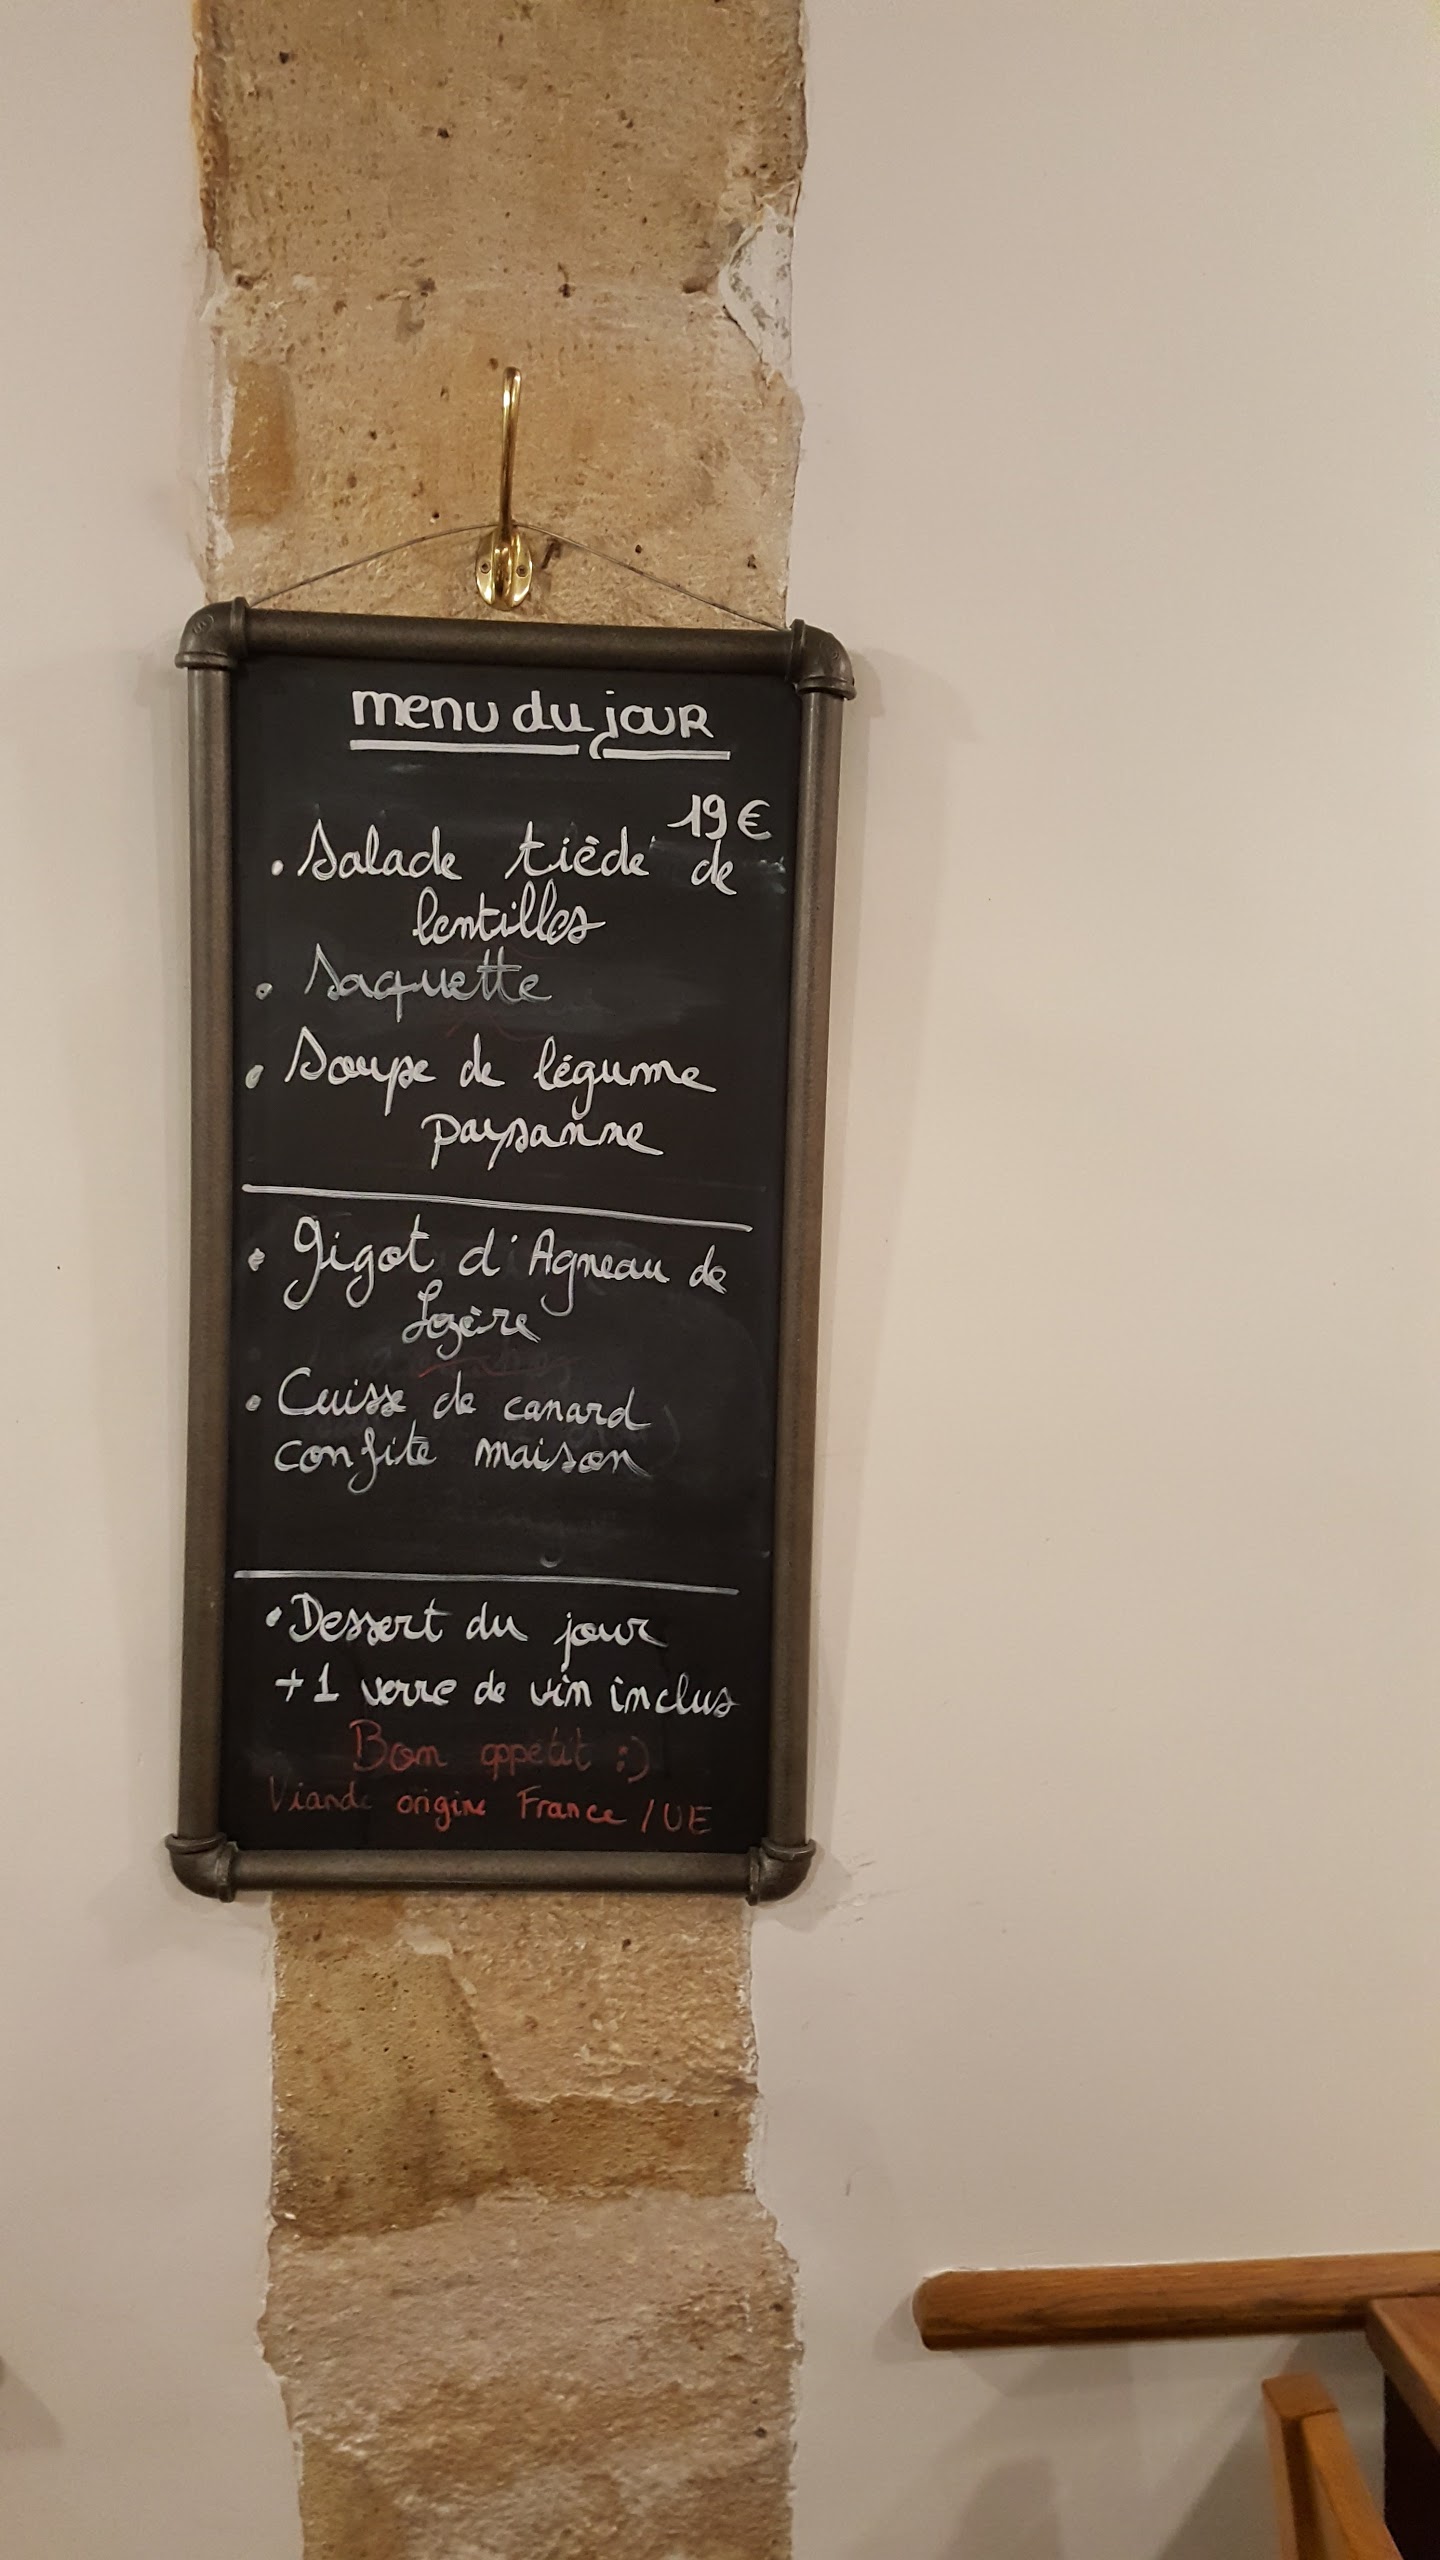 menu du jour
19€
• Salade tiède de
lentilles
• Saquette
• Soupe de légume
paysanne
• Gigot d'Agneau de
Lozère
• Cuisse de canard
confite maison
• Dessert du jour
+ 1 verre de vin inclus
Bon appétit :)
Viande origine France / UE